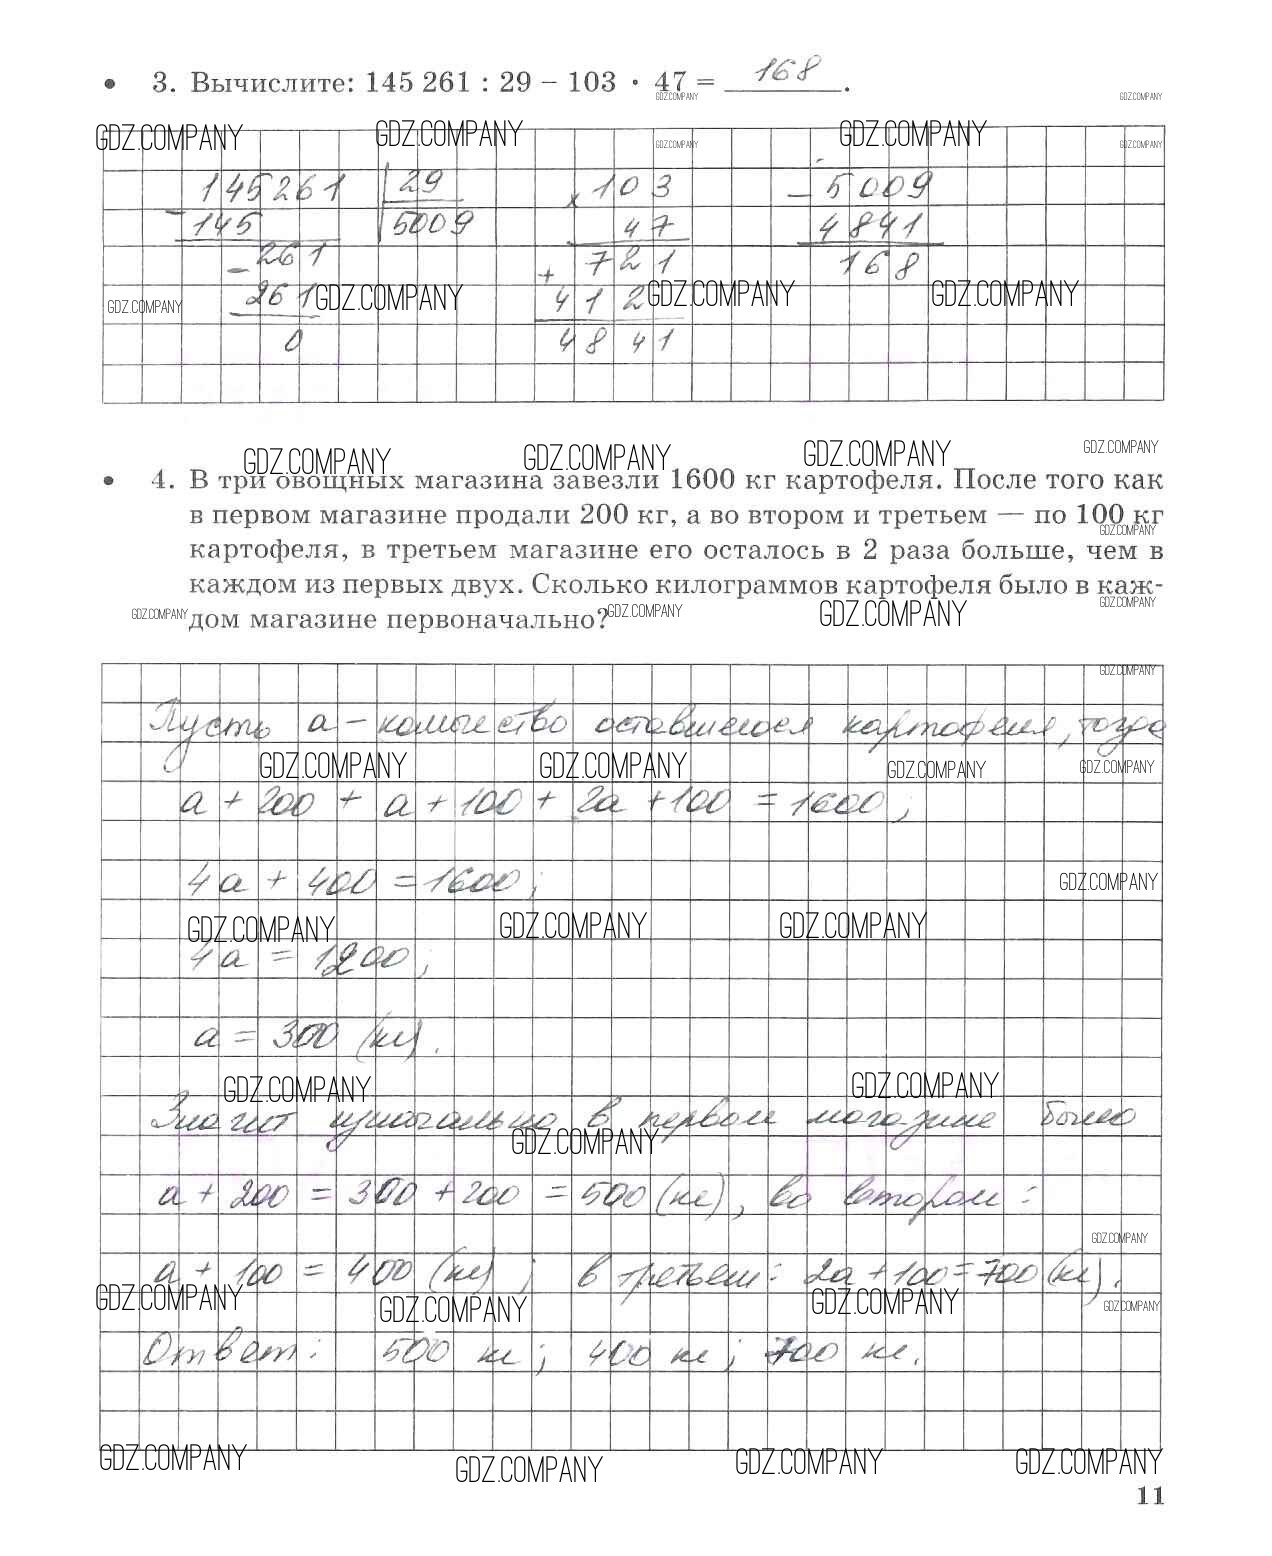 3. Вычислите: 145 261 : 29 – 103 · 47 = 168.
GDZ.COMPANY GDZ.COMPANY
GDZ.COMPANY GDZ.COMPANY GDZ.COMPANY GDZ.COMPANY GDZ.COMPANY
145261 29 × 103 – 5009
– 145 5009 47 4841
– 261 + 721 168
261 412
GDZ.COMPANY GDZ.COMPANY GDZ.COMPANY GDZ.COMPANY
0 4841
GDZ.COMPANY GDZ.COMPANY GDZ.COMPANY GDZ.COMPANY
4. В три овощных магазина завезли 1600 кг картофеля. После того как
в первом магазине продали 200 кг, а во втором и третьем — по 100 кг
GDZ.COMPANY
картофеля, в третьем магазине его осталось в 2 раза больше, чем в
каждом из первых двух. Сколько килограммов картофеля было в каж-
GDZ.COMPANY GDZ.COMPANY GDZ.COMPANY GDZ.COMPANY
дом магазине первоначально?
GDZ.COMPANY
Пусть a – количество оставшегося картофеля, тогда
GDZ.COMPANY GDZ.COMPANY GDZ.COMPANY GDZ.COMPANY
a + 200 + a + 100 + 2a + 100 = 1600;
4a + 400 = 1600;
GDZ.COMPANY
GDZ.COMPANY GDZ.COMPANY GDZ.COMPANY
4a = 1200;
a = 300 (кг).
GDZ.COMPANY GDZ.COMPANY
Значит изначально в первом магазине было
GDZ.COMPANY
a + 200 = 300 + 200 = 500 (кг), во втором:
GDZ.COMPANY
a + 100 = 400 (кг); в третьем: 2a + 100 = 700 (кг).
GDZ.COMPANY GDZ.COMPANY GDZ.COMPANY GDZ.COMPANY
Ответ: 500 кг; 400 кг; 700 кг.
GDZ.COMPANY GDZ.COMPANY GDZ.COMPANY GDZ.COMPANY
11